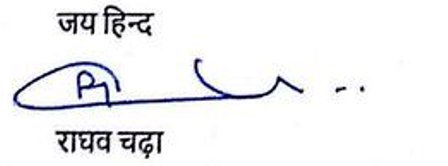 जय हिन्द
राघव चढ़ा